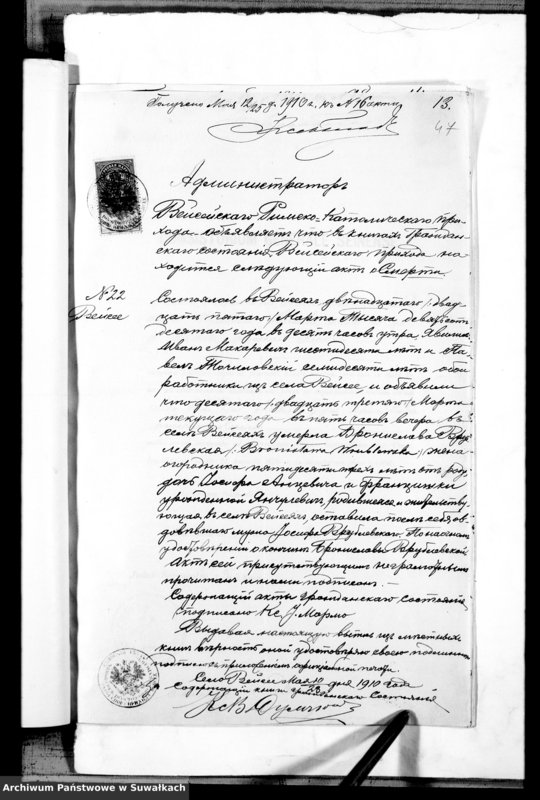 Получено Мая 12/25 д. 1910 г. къ № 16 акту
13.
47
Администраторъ
Вейсейскаго Римско-Католическаго при-
хода объявляетъ что въ книгахъ граждан-
скаго состоянія Вейсейскаго прихода на-
ходится слѣдующій актъ о Смерти
№ 22
Вейсее
Состоялось въ Вейсеяхъ двѣнадцатаго / двад-
цать пятаго / Марта тысяча девятьсотъ
десятаго года въ десять часовъ утра. Явились
Иванъ Макаревичъ шестидесяти лѣтъ и Па-
велъ семидесяти лѣтъ обои
работники изъ села Вейсее и объявили
что десятаго / двадцать третяго / Марта
текущаго года въ пять часовъ вечера въ
селѣ Вейсеяхъ умерла Бронислава Вруб-
левская / Bronisława Wrublewska / жена
огородника пятидесяти трехъ лѣтъ отъ роду
дочь Іосифа и Францишки
урожденной родившаяся и жительству-
ющая въ селѣ Вейсеяхъ, оставила послѣ себя ов-
довѣвшаго мужа Іосифа Врублевскаго. По настоящемъ
удостовѣреніи о кончинѣ Брониславы Врублевской
актъ сей присутствующимъ неграмотнымъ
прочитанъ и нами подписанъ. —
Содержащій акты гражданскаго состоянія
/подписано/ Кс. І.
Выдавая настоящую выпись изъ метрическихъ
книгъ вѣрность оной удостовѣряю своею подписью
съ приложеніемъ оффиціальной печати
Село Вейсее Мая дня 1910 года
Содержащій книги гражданскаго состоянія
Кс В
Archiwum Państwowe w Suwałkach